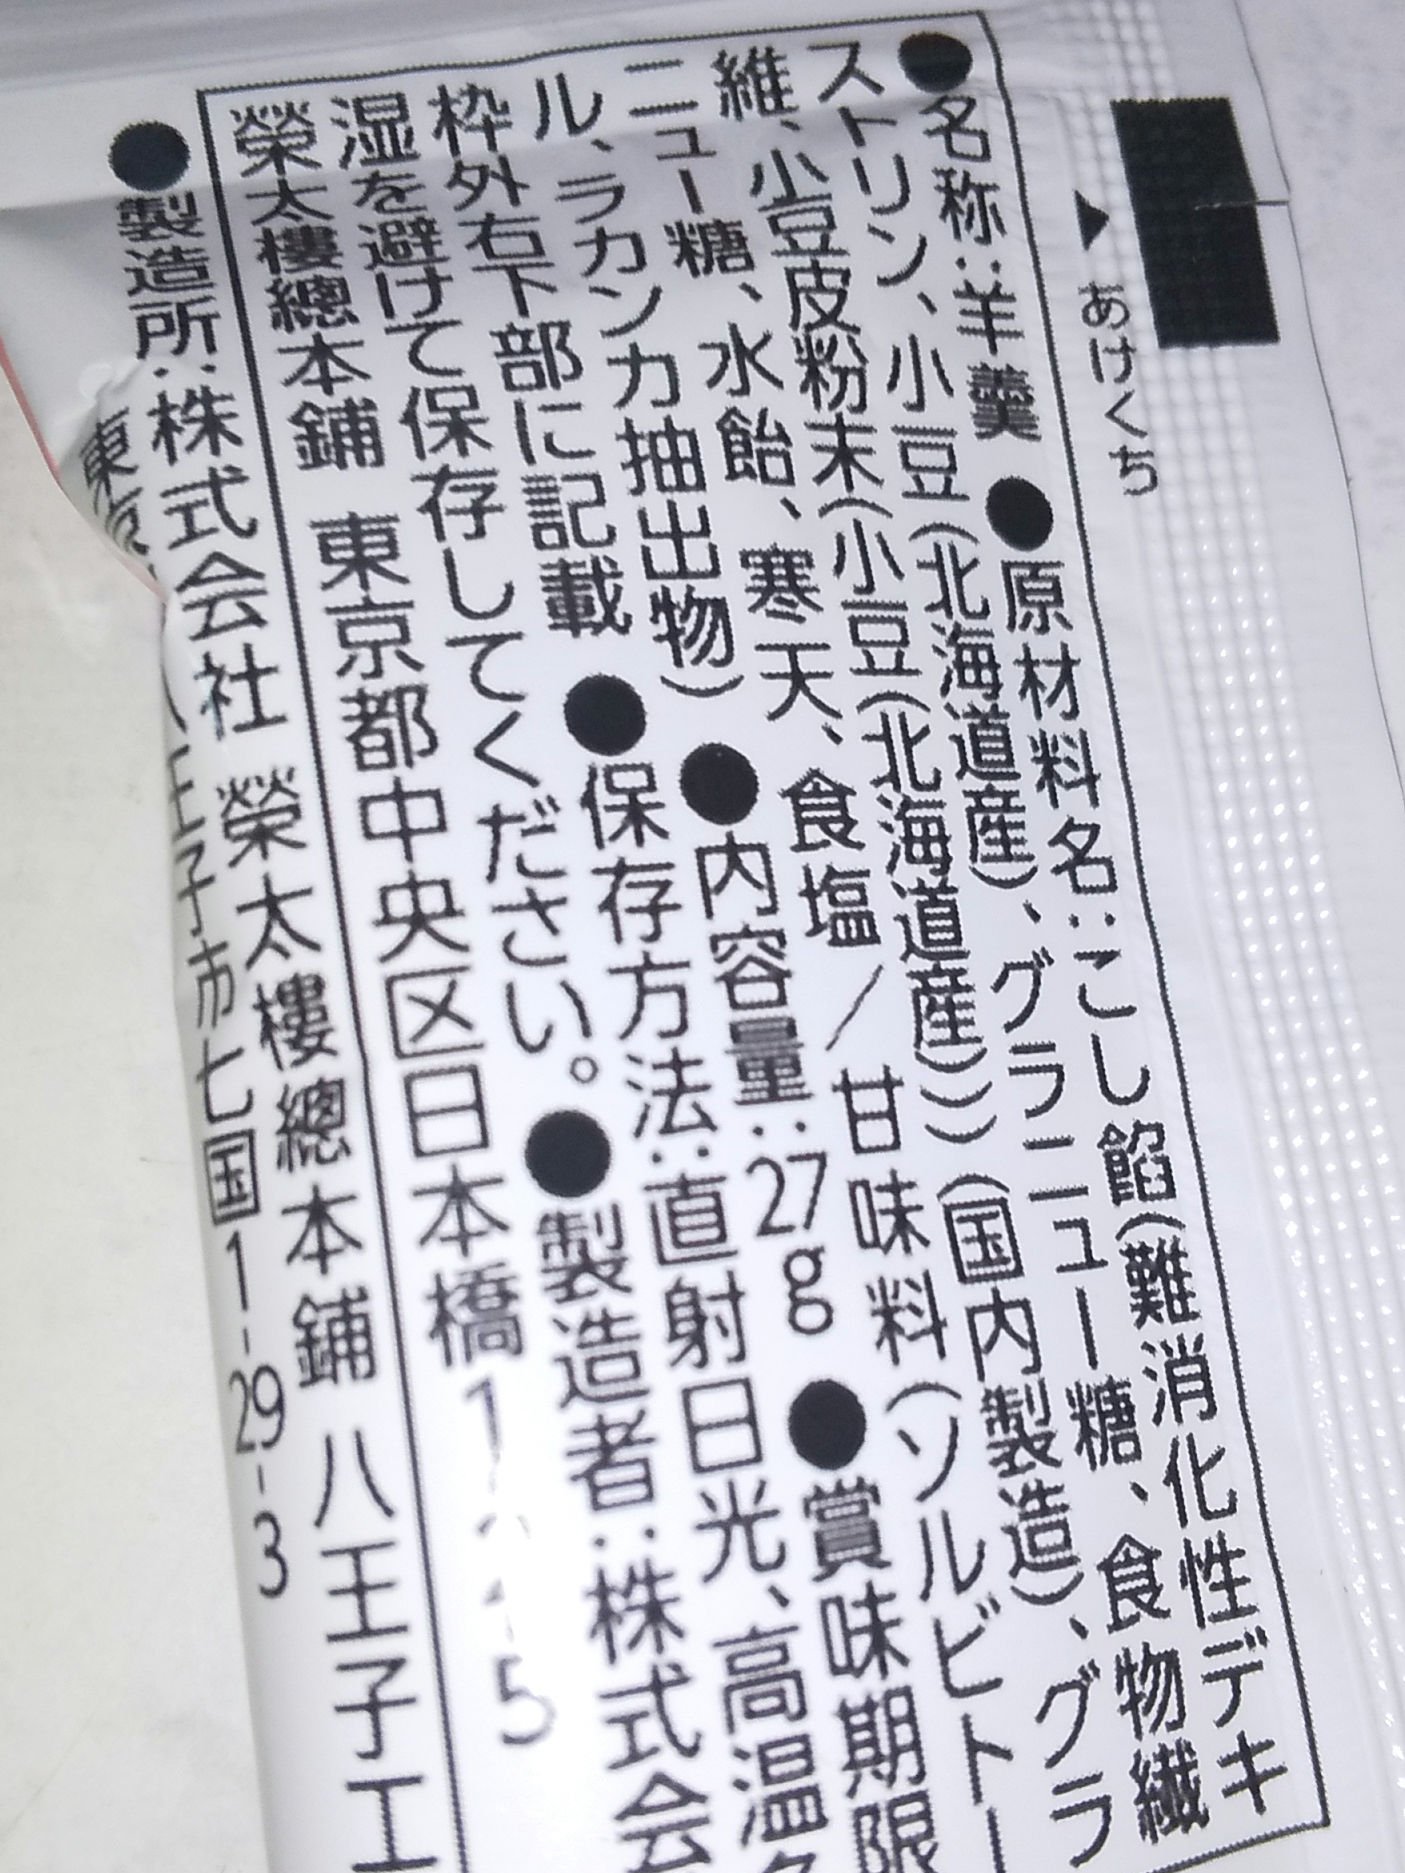 あけくち
●名称:羊羹 ●原材料名:こし餡(難消化性デキ
ストリン、小豆(北海道産)、グラニュー糖、食物繊
維、小豆皮粉末(小豆(北海道産)))(国内製造)、グラ
ニュー糖、水飴、寒天、食塩/甘味料(ソルビトー
ル、ラカンカ抽出物) ●内容量:27g ●賞味期限
枠外右下部に記載 ●保存方法:直射日光、高温
湿を避けて保存してください。●製造者:株式会
榮太樓總本鋪 東京都中央区日本橋
●製造所:株式会社 榮太樓總本鋪 八王子工
東京 王子市七国1-29-3